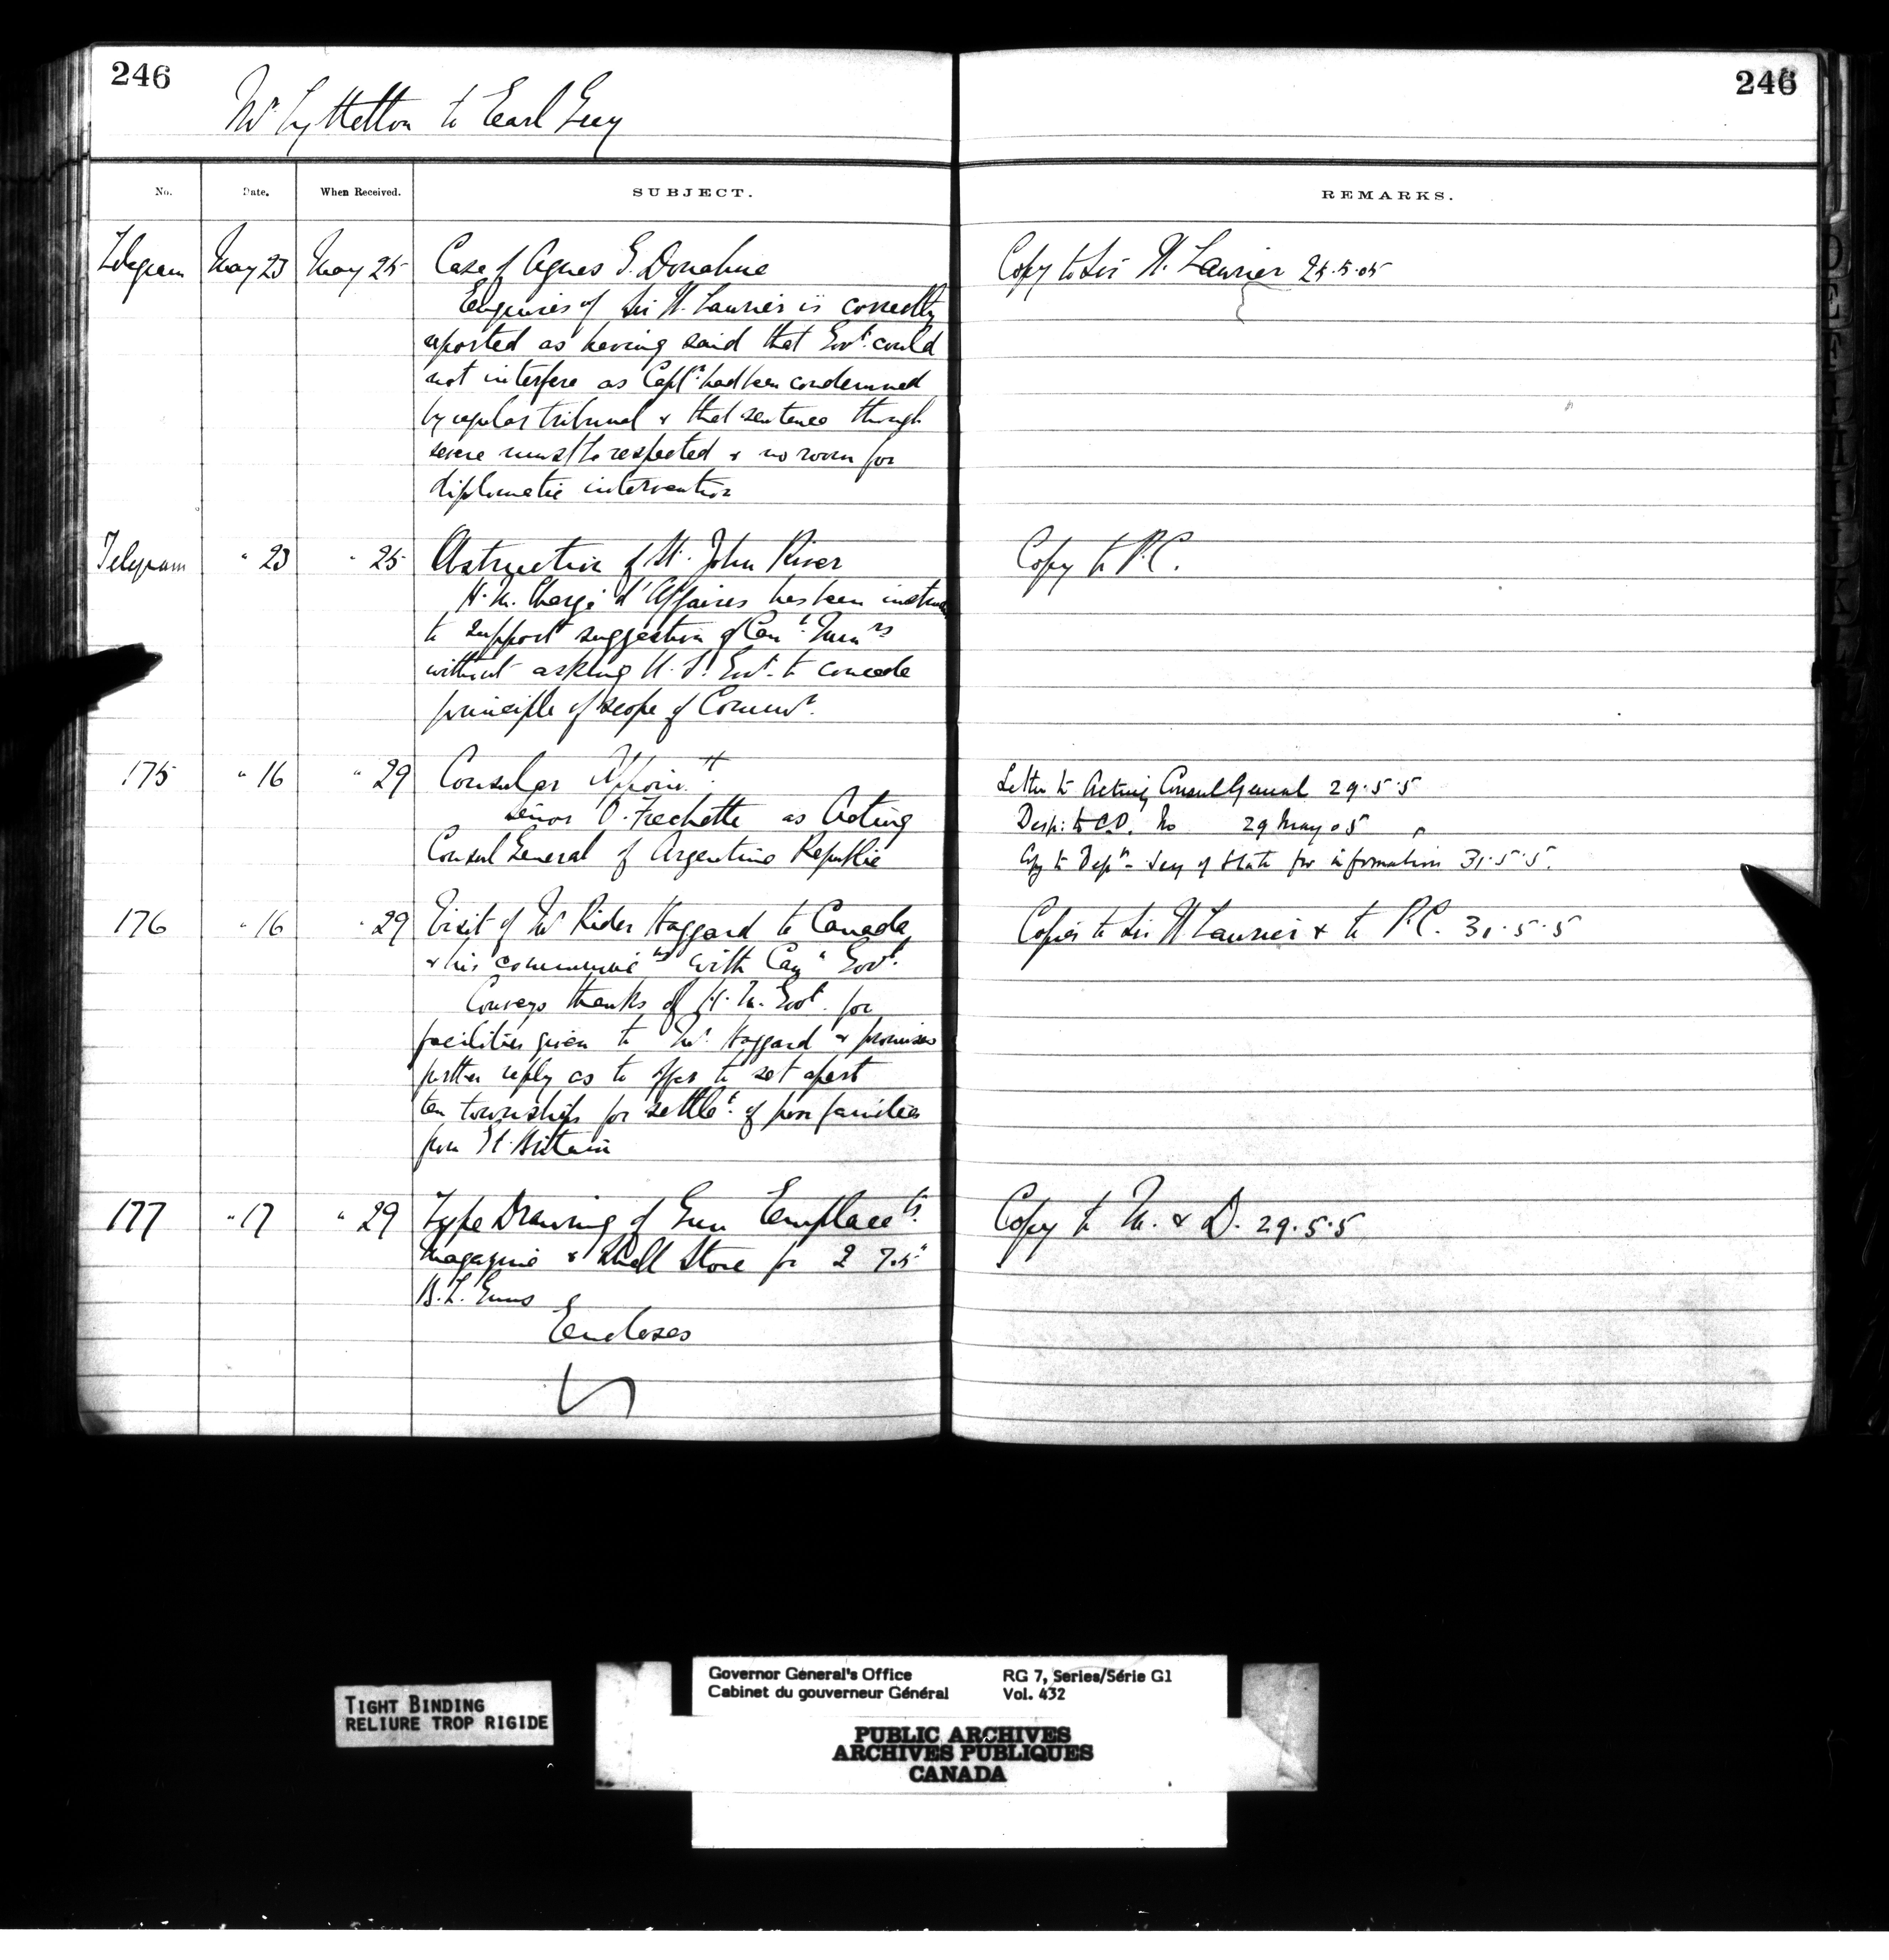 246
246
Mr Lyttelton to Earl Grey
No. Date. When Received. SUBJECT. REMARKS.
Telegram May 23 May 25 Case of Agnes G. Donahue Copy to Sir W. Laurier 25.5.05
Enquires if Sir W. Laurier is correctly
reported as having said that Govt. could
not interfere as Captn. had been condemned
by regular tribunal & that sentence though
severe must be respected & no room for
diplomatic intervention
Telegram " 23 " 25 Obstruction of St. John River Copy to P.C.
H.M. Chargé d'Affaires has been
to support suggestion of Can
without asking U.S. Govt. to concede
principle of scope of Commn.
175 " 16 " 29 Consular Appoint. Letter to Acting Consul General 29.5.5
Señor O. Frechette as Acting Desp: to C.O. No 29 May 05 "
Consul General of Argentine Republic Copy to Depn. Secy of State for information 31.5.5.
176 " 16 " 29 Visit of Mr Rider Haggard to Canada Copies to Sir W. Laurier & to P.C. 31.5.5
& his communicns with Cann Govt.
Conveys thanks of H.M. Govt. for
facilities given to Mr. Haggard & promises
further reply as to offer to set apart
ten townships for settlet. of poor families
from Gt. Britain
177 " 17 " 29 Type Drawing of Gun Emplacets. Copy to M. & D. 29.5.5
Magazine & Shell Store for 2 7.5"
B.L. Guns
Encloses
TIGHT BINDING
RELIURE TROP RIGIDE
Governor General's Office RG 7, Series/Série G1
Cabinet du gouverneur Général Vol. 432
PUBLIC ARCHIVES
ARCHIVES PUBLIQUES
CANADA